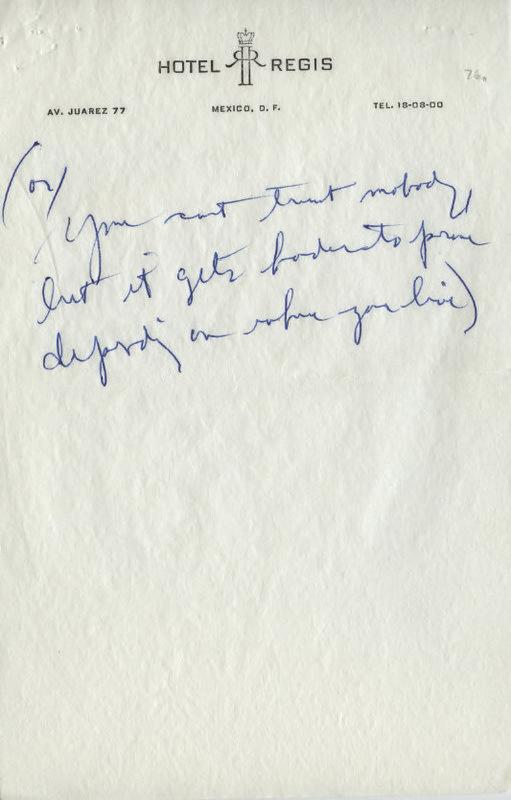 HOTEL RR REGIS
76
AV. JUAREZ 77 MEXICO, D. F. TEL. 18-08-00
(or
You cant trust nobody,
but it gets harder to prove
depending on where you live)